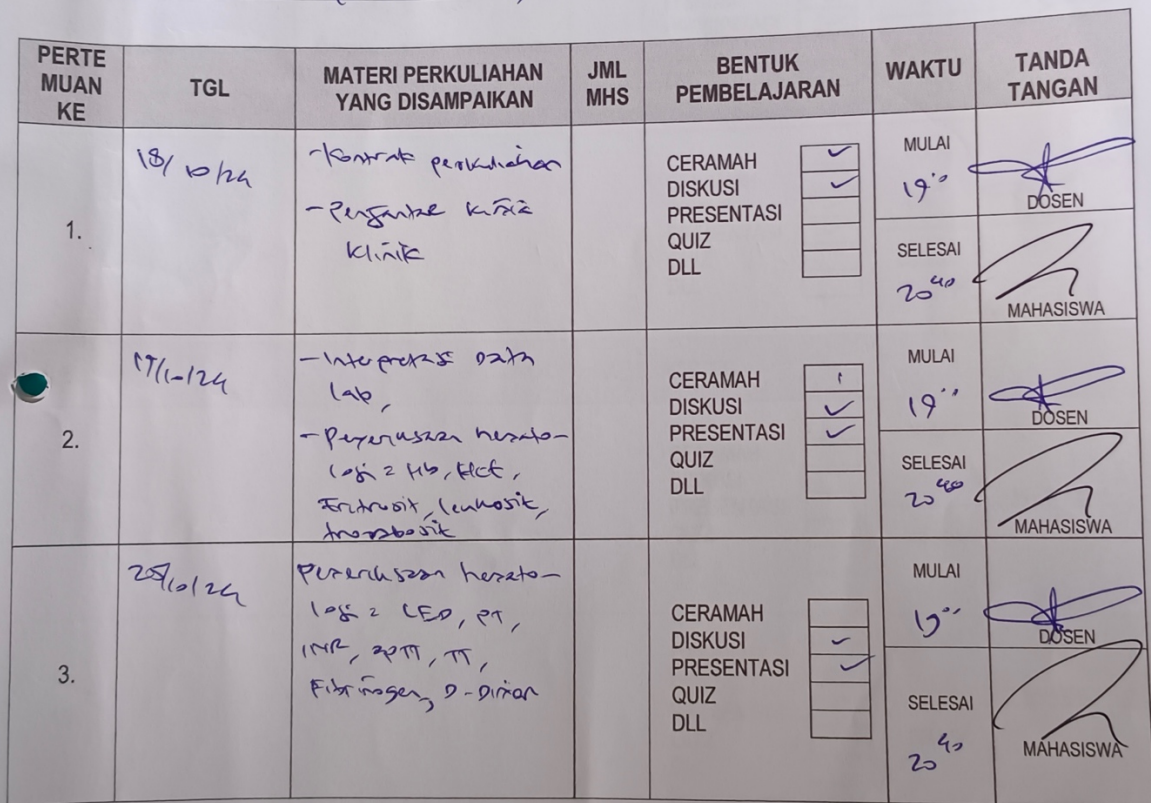 PERTE
MUAN
KE
TGL
MATERI PERKULIAHAN
YANG DISAMPAIKAN
JML
MHS
BENTUK
PEMBELAJARAN
WAKTU
TANDA
TANGAN
1.
18/10/24
- Kontrak perkuliahan
- Pengantar kimia
klinik
CERAMAH ✓
DISKUSI ✓
PRESENTASI
QUIZ
DLL
MULAI
19.00
SELESAI
20 40
DOSEN
MAHASISWA
2.
- Interpretasi Data
lab,
- Pemeriksaan hemato-
logi = Hb, Hct,
Eritrosit, leukosit,
trombosit
CERAMAH
DISKUSI ✓
PRESENTASI ✓
QUIZ
DLL
MULAI
19
SELESAI
20 40
DOSEN
MAHASISWA
3.
25/10/24
Pemeriksaan hemato-
logi = LED, PT,
INR, aPTT, TT,
Fibrinogen, D-Dimer
CERAMAH
DISKUSI ✓
PRESENTASI ✓
QUIZ
DLL
MULAI
SELESAI
20 40
DOSEN
MAHASISWA